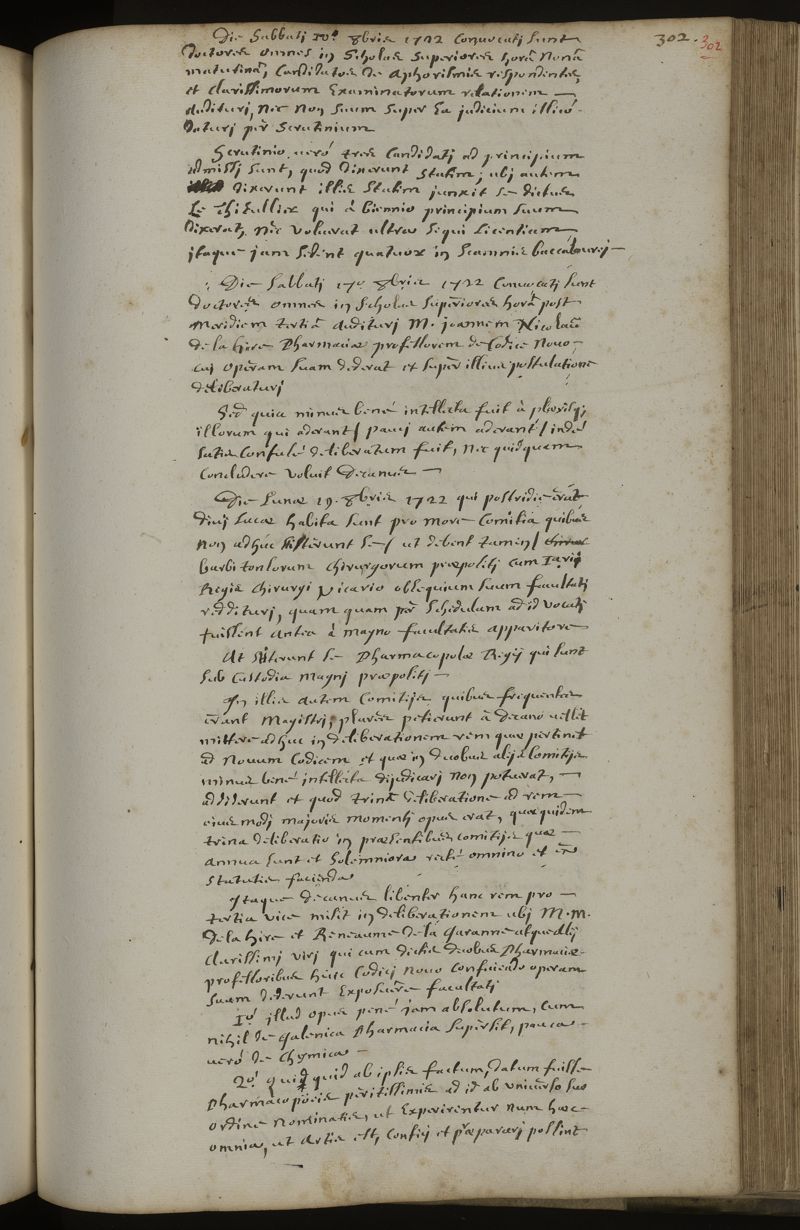 302. 302
Die Sabbatj 10ª 8bris 1722 Convocatj sunt
doctores omnes in Scholas Superiores horâ Nonâ
matutinâ, Candidatos de aphorismis respondentes
et clarissimorum Examinatorum relationem —
audituri, nec non suum super Ea judicium illicò
daturj per Scrutinium
Scrutinio verò tres Candidatj ad principium
admissj sunt, quod dixerunt statim; ubj autem
dixerunt illis statim junxit se dictus
Le thieullier qui à biennio principium suum
dixerat, Nec voluerat ultra sequi Licentiam
jtaque jam sedent quatuor in Scamnis baccalaurej —
Die Sabbatj 17ª 8bris 1722 Convocatj sunt
doctores omnes in Scholas Superiores horâ post
Meridiem tertiâ auditurj M. joannem Nicolaum
de la hire Pharmaciae professorem de Codice Novo —
cuj operam suam dederat et super illius postulatione
deliberaturj
Sed quia minus benè intellecta fuit à plerisq;
illorum qui aderant / paucj autem aderant / indè
satis Confusè deliberatum fuit, Nec quidquam
Concludere voluit Decanus —
Die Lunae 19. 8bris 1722 quj postridiè erat
divj Lucae habita sunt pro more Comitia quibus
non adhuc stiterunt se / ut debent tamen /
barbitonsorum chirurgorum praepositj cum
Regis chirurgi vicario obsequium suum facultatj
redditurj, quam quam per Schedulam ad id vocatj
fuissent antea à magno facultatis apparitore
At stiterunt se Pharmacopolae Regij qui sunt
sub Custodia magnj praepositj —
In illis autem Comitijs quibus frequentes
erant Magistrj, plures petierunt à decano vellet
mittere adhuc in deliberationem rem quae pertinet
ad Novum Codicem et quae in duobus alijs Comitijs
minus benè intellecta dijudicarj non potuerat, —
addiderunt et quod trinâ deliberatione ad rem
ejus modj majoris momentj opus erat, quae quidem
trina deliberatio in praesentibus comitijs quae —
annua sunt et Solemniora rectè omnino et
statutis facienda
Itaque decanus libenter hanc rem pro —
tertia vice misit in deliberationem ubj M.M.
De la hire et Reneaume de la Garanne
clarissimj virj qui cum dictis duobus Pharmaciae
professoribus huic Codicj novo conficiendo operam
suam dederunt Exposuêre facultatj
1o. jllud opus penè jam absolutum, cum
nihil de galenica Pharmacia supersit, pauca —
verò de Chymica —
2o. quid quid ab ipsis factum, datum fuisse
Pharmacopoeis peritissimis ad id ab universo suo
ordine Nominatis, ut Experirentur num haec
omnia, ut artis est, confici et praepararj possint